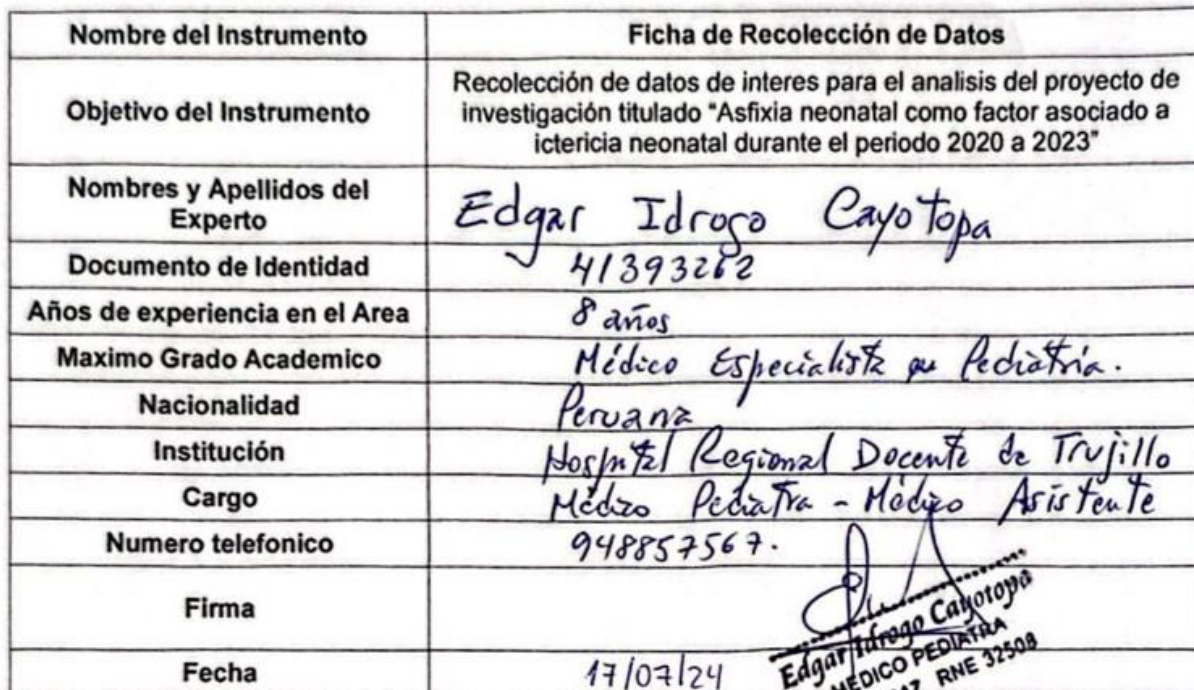 Nombre del Instrumento
Ficha de Recolección de Datos
Objetivo del Instrumento
Recolección de datos de interes para el analisis del proyecto de
investigación titulado "Asfixia neonatal como factor asociado a
ictericia neonatal durante el periodo 2020 a 2023"
Nombres y Apellidos del
Experto
Edgar Idrogo Cayotopa
Documento de Identidad
41393262
Años de experiencia en el Area
8 años
Maximo Grado Academico
Médico Especialista en Pediatría.
Nacionalidad
Peruana
Institución
Hospital Regional Docente de Trujillo
Cargo
Médico Pediatra - Médico Asistente
Numero telefonico
948857567.
Firma
Edgar Idrogo Cayotopa
MEDICO PEDIATRA
RNE 32508
Fecha
17/07/24